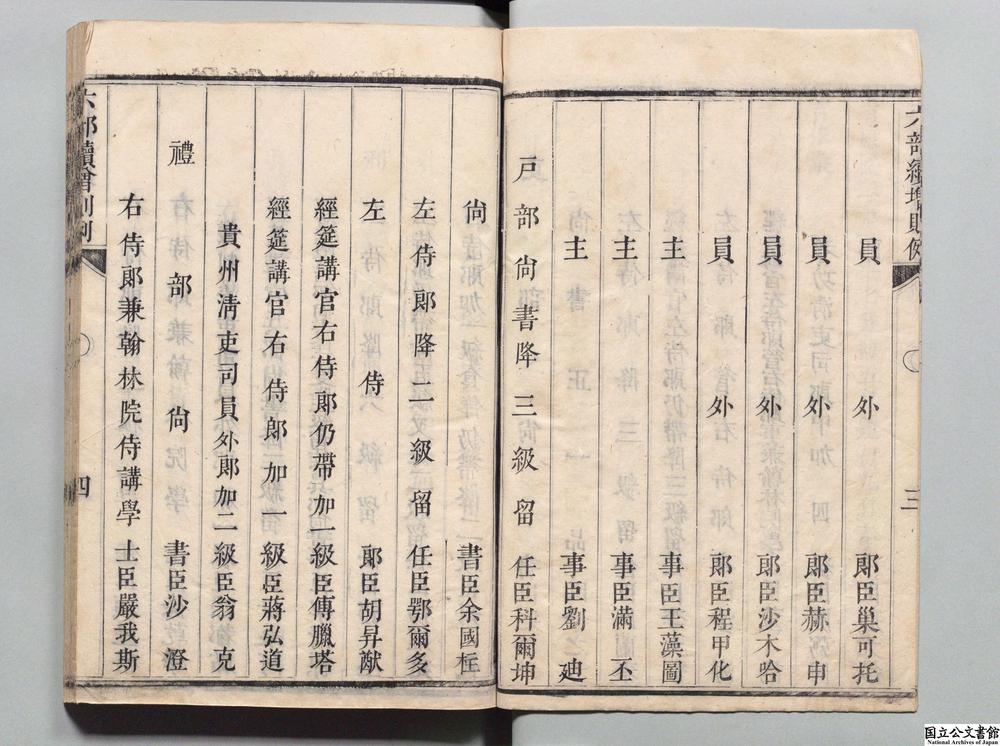 員外郎臣巢可托
員外郎臣赫申
員外郎臣沙木哈
員外郎臣程甲化
主事臣王藻圖
主事臣滿丕
主事臣劉迪
戸部尙書降三級留任臣科爾坤
三
尙書臣余國柱
左侍郎降二級留任臣鄂爾多
左侍郎臣胡昇猷
經筵講官右侍郎仍帶加一級臣傅臘塔
經筵講官右侍郎加一級臣蔣弘道
貴州淸吏司員外郎加二級臣翁克
禮部尙書臣沙澄
右侍郎兼翰林院侍講學士臣嚴我斯
四
国立公文書館
National Archives of Japan